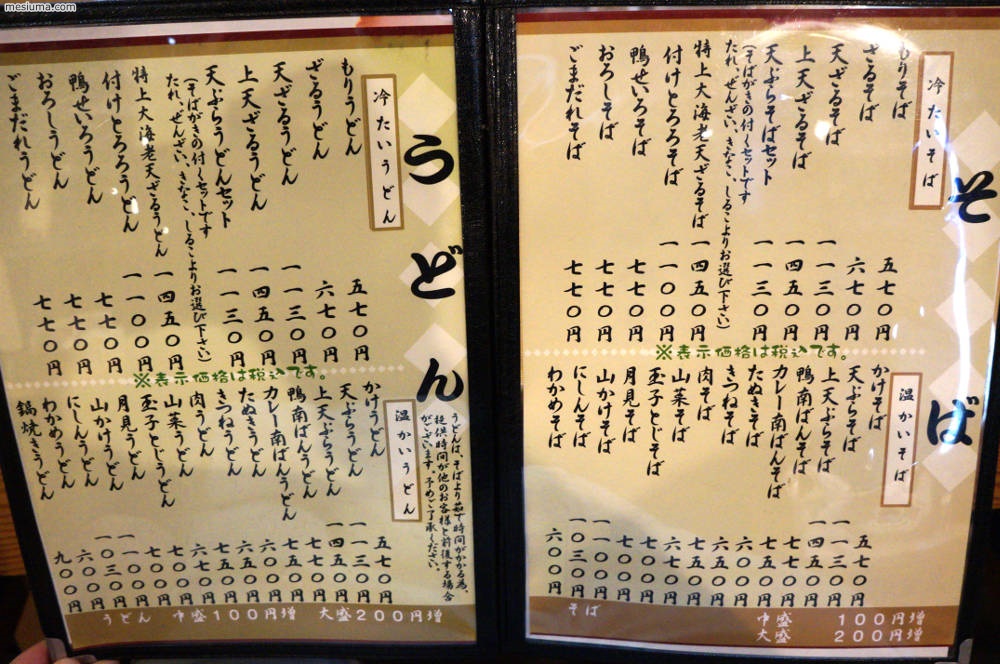 mesiuma.com
そば
冷たいそば
もりそば 五七〇円
ざるそば 六七〇円
天ざるそば 一一三〇円
上天ざるそば 一四五〇円
天ぷらそばセット 一一三〇円
(そばがきの付くセットです
たれ、ぜんざい、きなこ、しるこよりお選び下さい)
特上大海老天ざるそば 一四五〇円
付けとろろそば 一一〇〇円
鴨せいろそば 七七〇円
おろしそば 七七〇円
ごまだれそば 七七〇円
※表示価格は税込です。
温かいそば
かけそば 五七〇円
天ぷらそば 一一三〇円
上天ぷらそば 一四五〇円
鴨南ばんそば 七七〇円
カレー南ばんそば 七五〇円
たぬきそば 六〇〇円
きつねそば 六五〇円
肉そば 七五〇円
山菜そば 六七〇円
玉子とじそば 七〇〇円
月見そば 七〇〇円
山かけそば 一一〇〇円
にしんそば 一〇三〇円
わかめそば 六〇〇円
そば 中盛 100円増
大盛 200円増
うどん
冷たいうどん
もりうどん 五七〇円
ざるうどん 六七〇円
天ざるうどん 一一三〇円
上天ざるうどん 一四五〇円
天ぷらうどんセット 一一三〇円
(そばがきの付くセットです
たれ、ぜんざい、きなこ、しるこよりお選び下さい)
特上大海老天ざるうどん 一四五〇円
付けとろろうどん 一一〇〇円
鴨せいろうどん 七七〇円
おろしうどん 七七〇円
ごまだれうどん 七七〇円
※表示価格は税込です。
うどんは、そばより茹で時間がかかる為、
提供時間が他のお客様と前後する場合
がございます。予めご了承ください。
温かいうどん
かけうどん 五七〇円
天ぷらうどん 一一三〇円
上天ぷらうどん 一四五〇円
鴨南ばんうどん 七七〇円
カレー南ばんうどん 七五〇円
たぬきうどん 六〇〇円
きつねうどん 六五〇円
肉うどん 七五〇円
山菜うどん 六七〇円
玉子とじうどん 七〇〇円
月見うどん 七〇〇円
山かけうどん 一一〇〇円
にしんうどん 一〇三〇円
わかめうどん 六〇〇円
鍋焼きうどん 九〇〇円
うどん 中盛100円増 大盛200円増